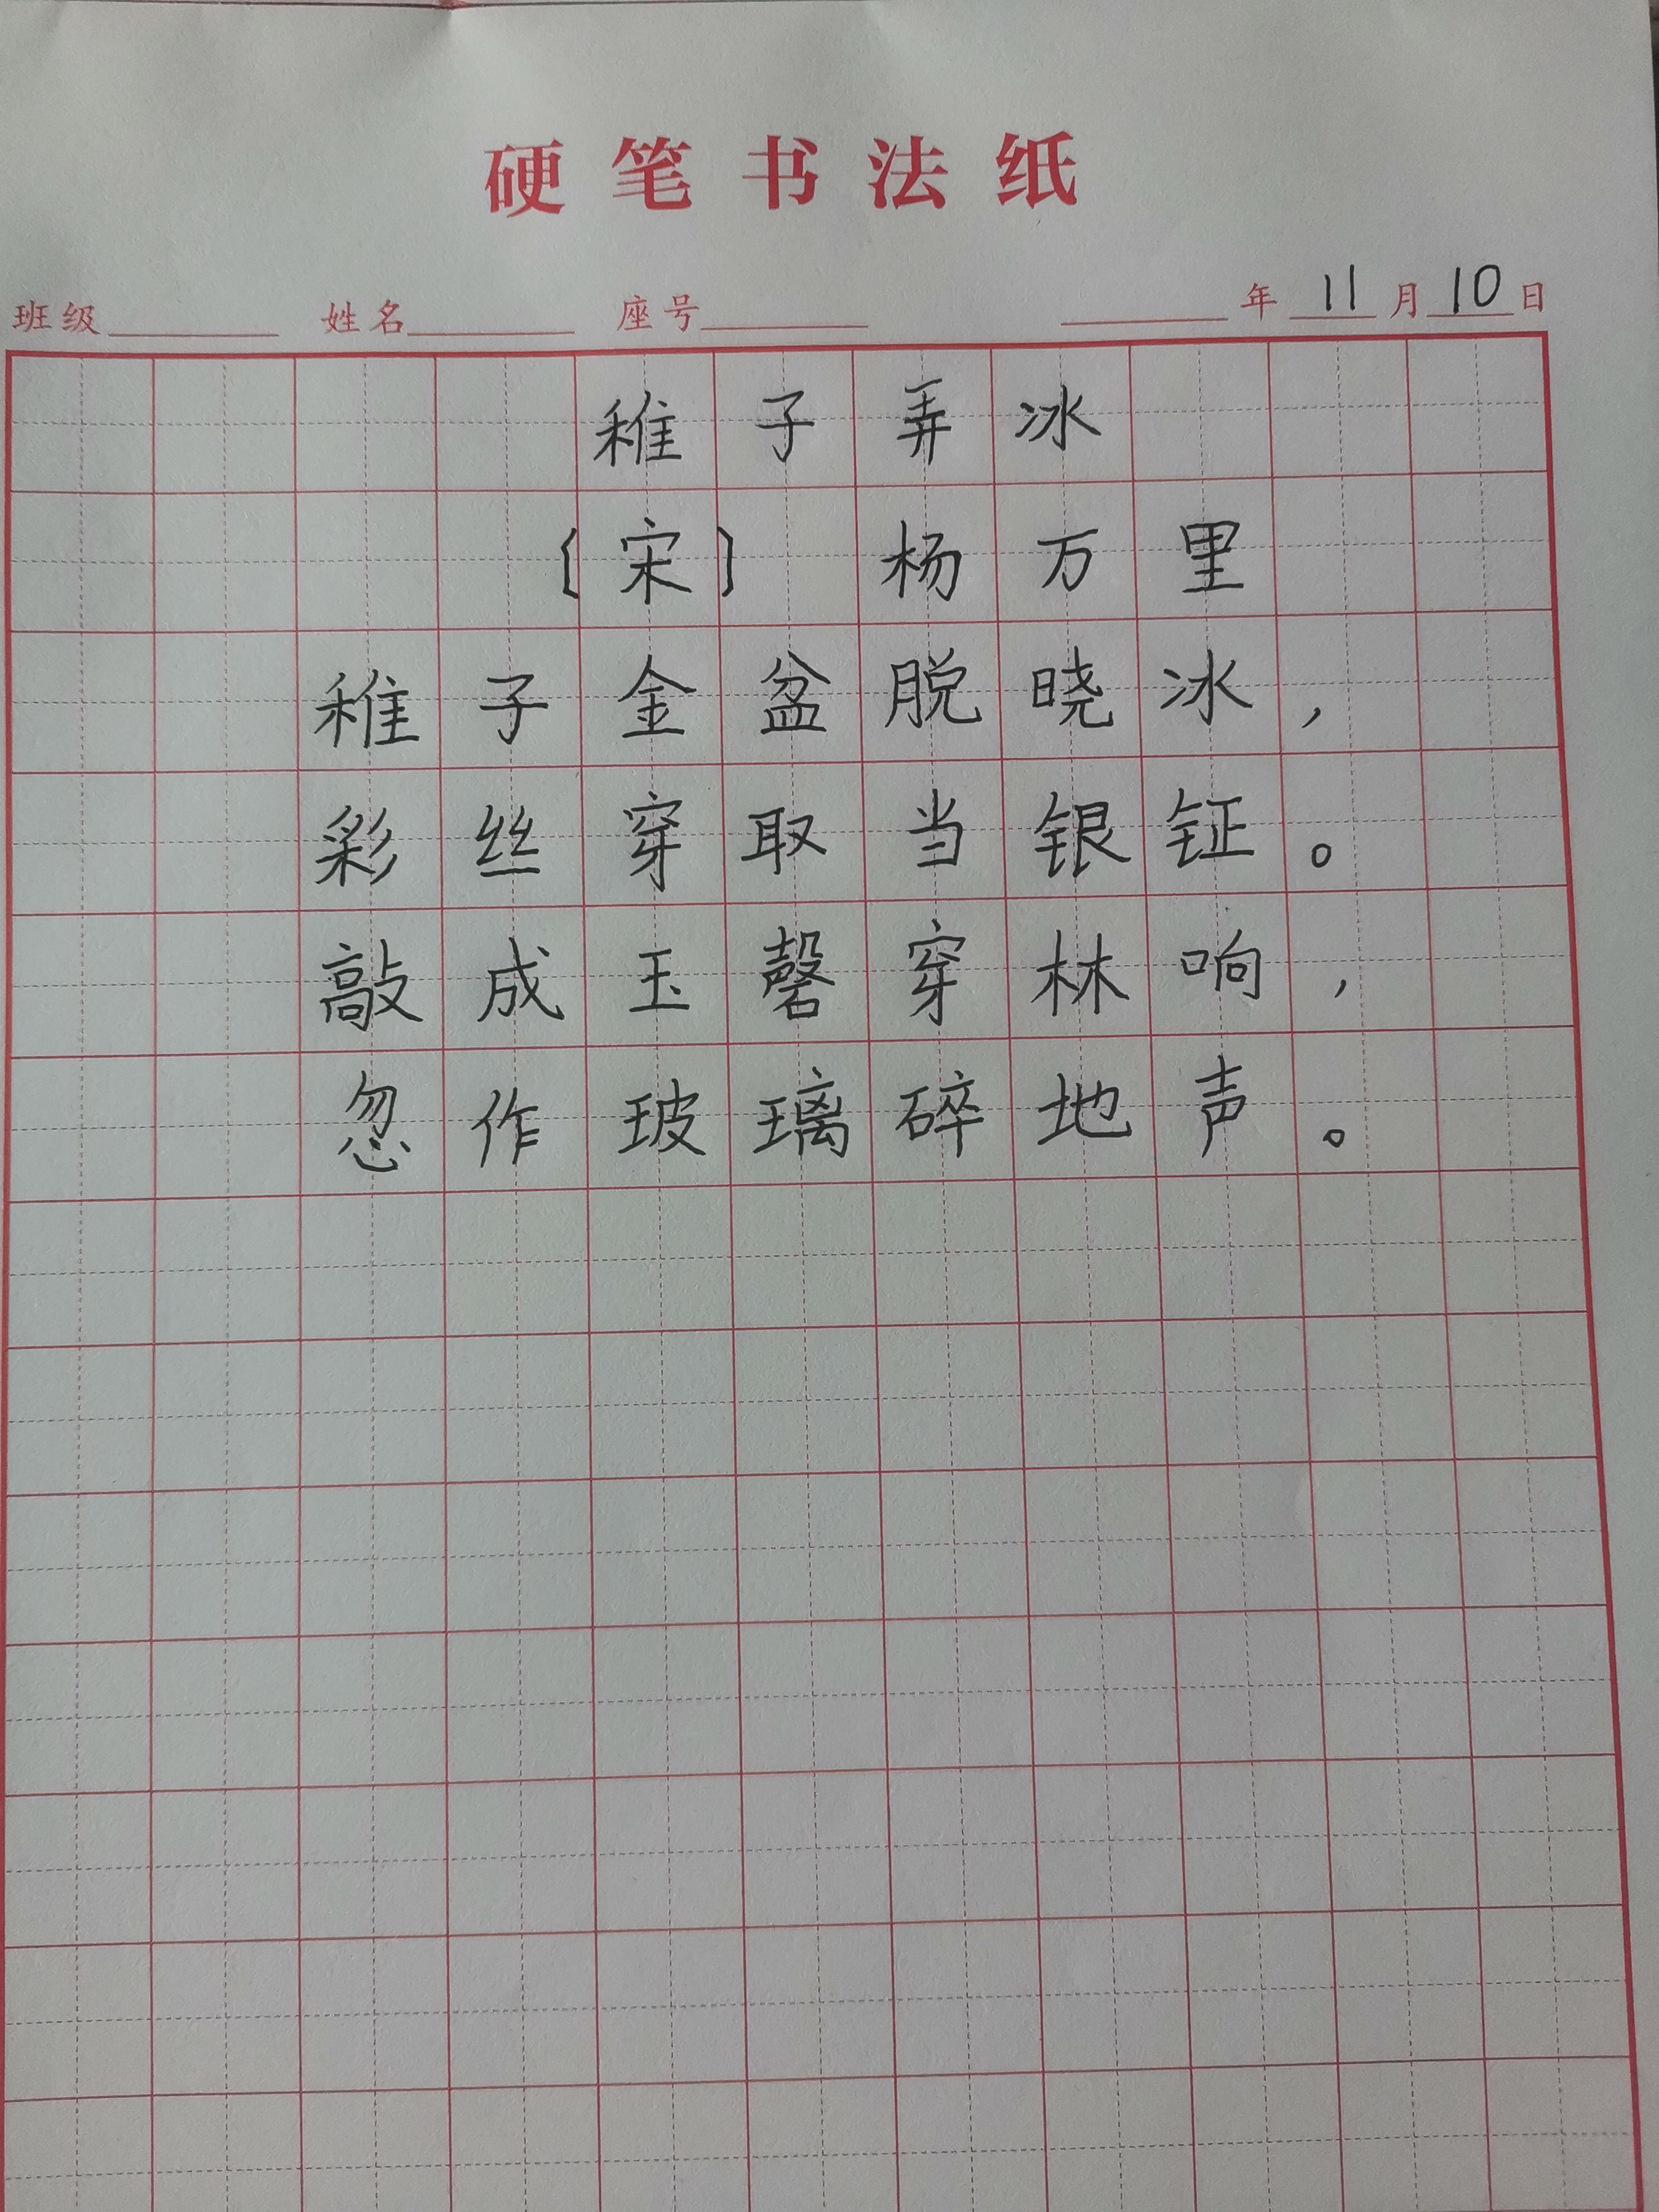 硬笔书法纸
班级 姓名 座号 年 11 月 10 日
稚子弄冰
〔宋〕 杨万里
稚子金盆脱晓冰，
彩丝穿取当银钲。
敲成玉磬穿林响，
忽作玻璃碎地声。